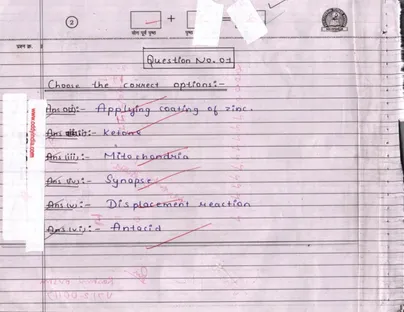 2
+
योग पूर्व पृष्ठ
पृष्ठ
प्रश्न क्र.
Question No. 01
Choose the correct options:-
Ans (i):- Applying coating of zinc.
Ans (ii):- Ketone
Ans (iii):- Mitochondria
Ans (iv):- Synapse
Ans (v):- Displacement reaction
Ans (vi):- Antacid